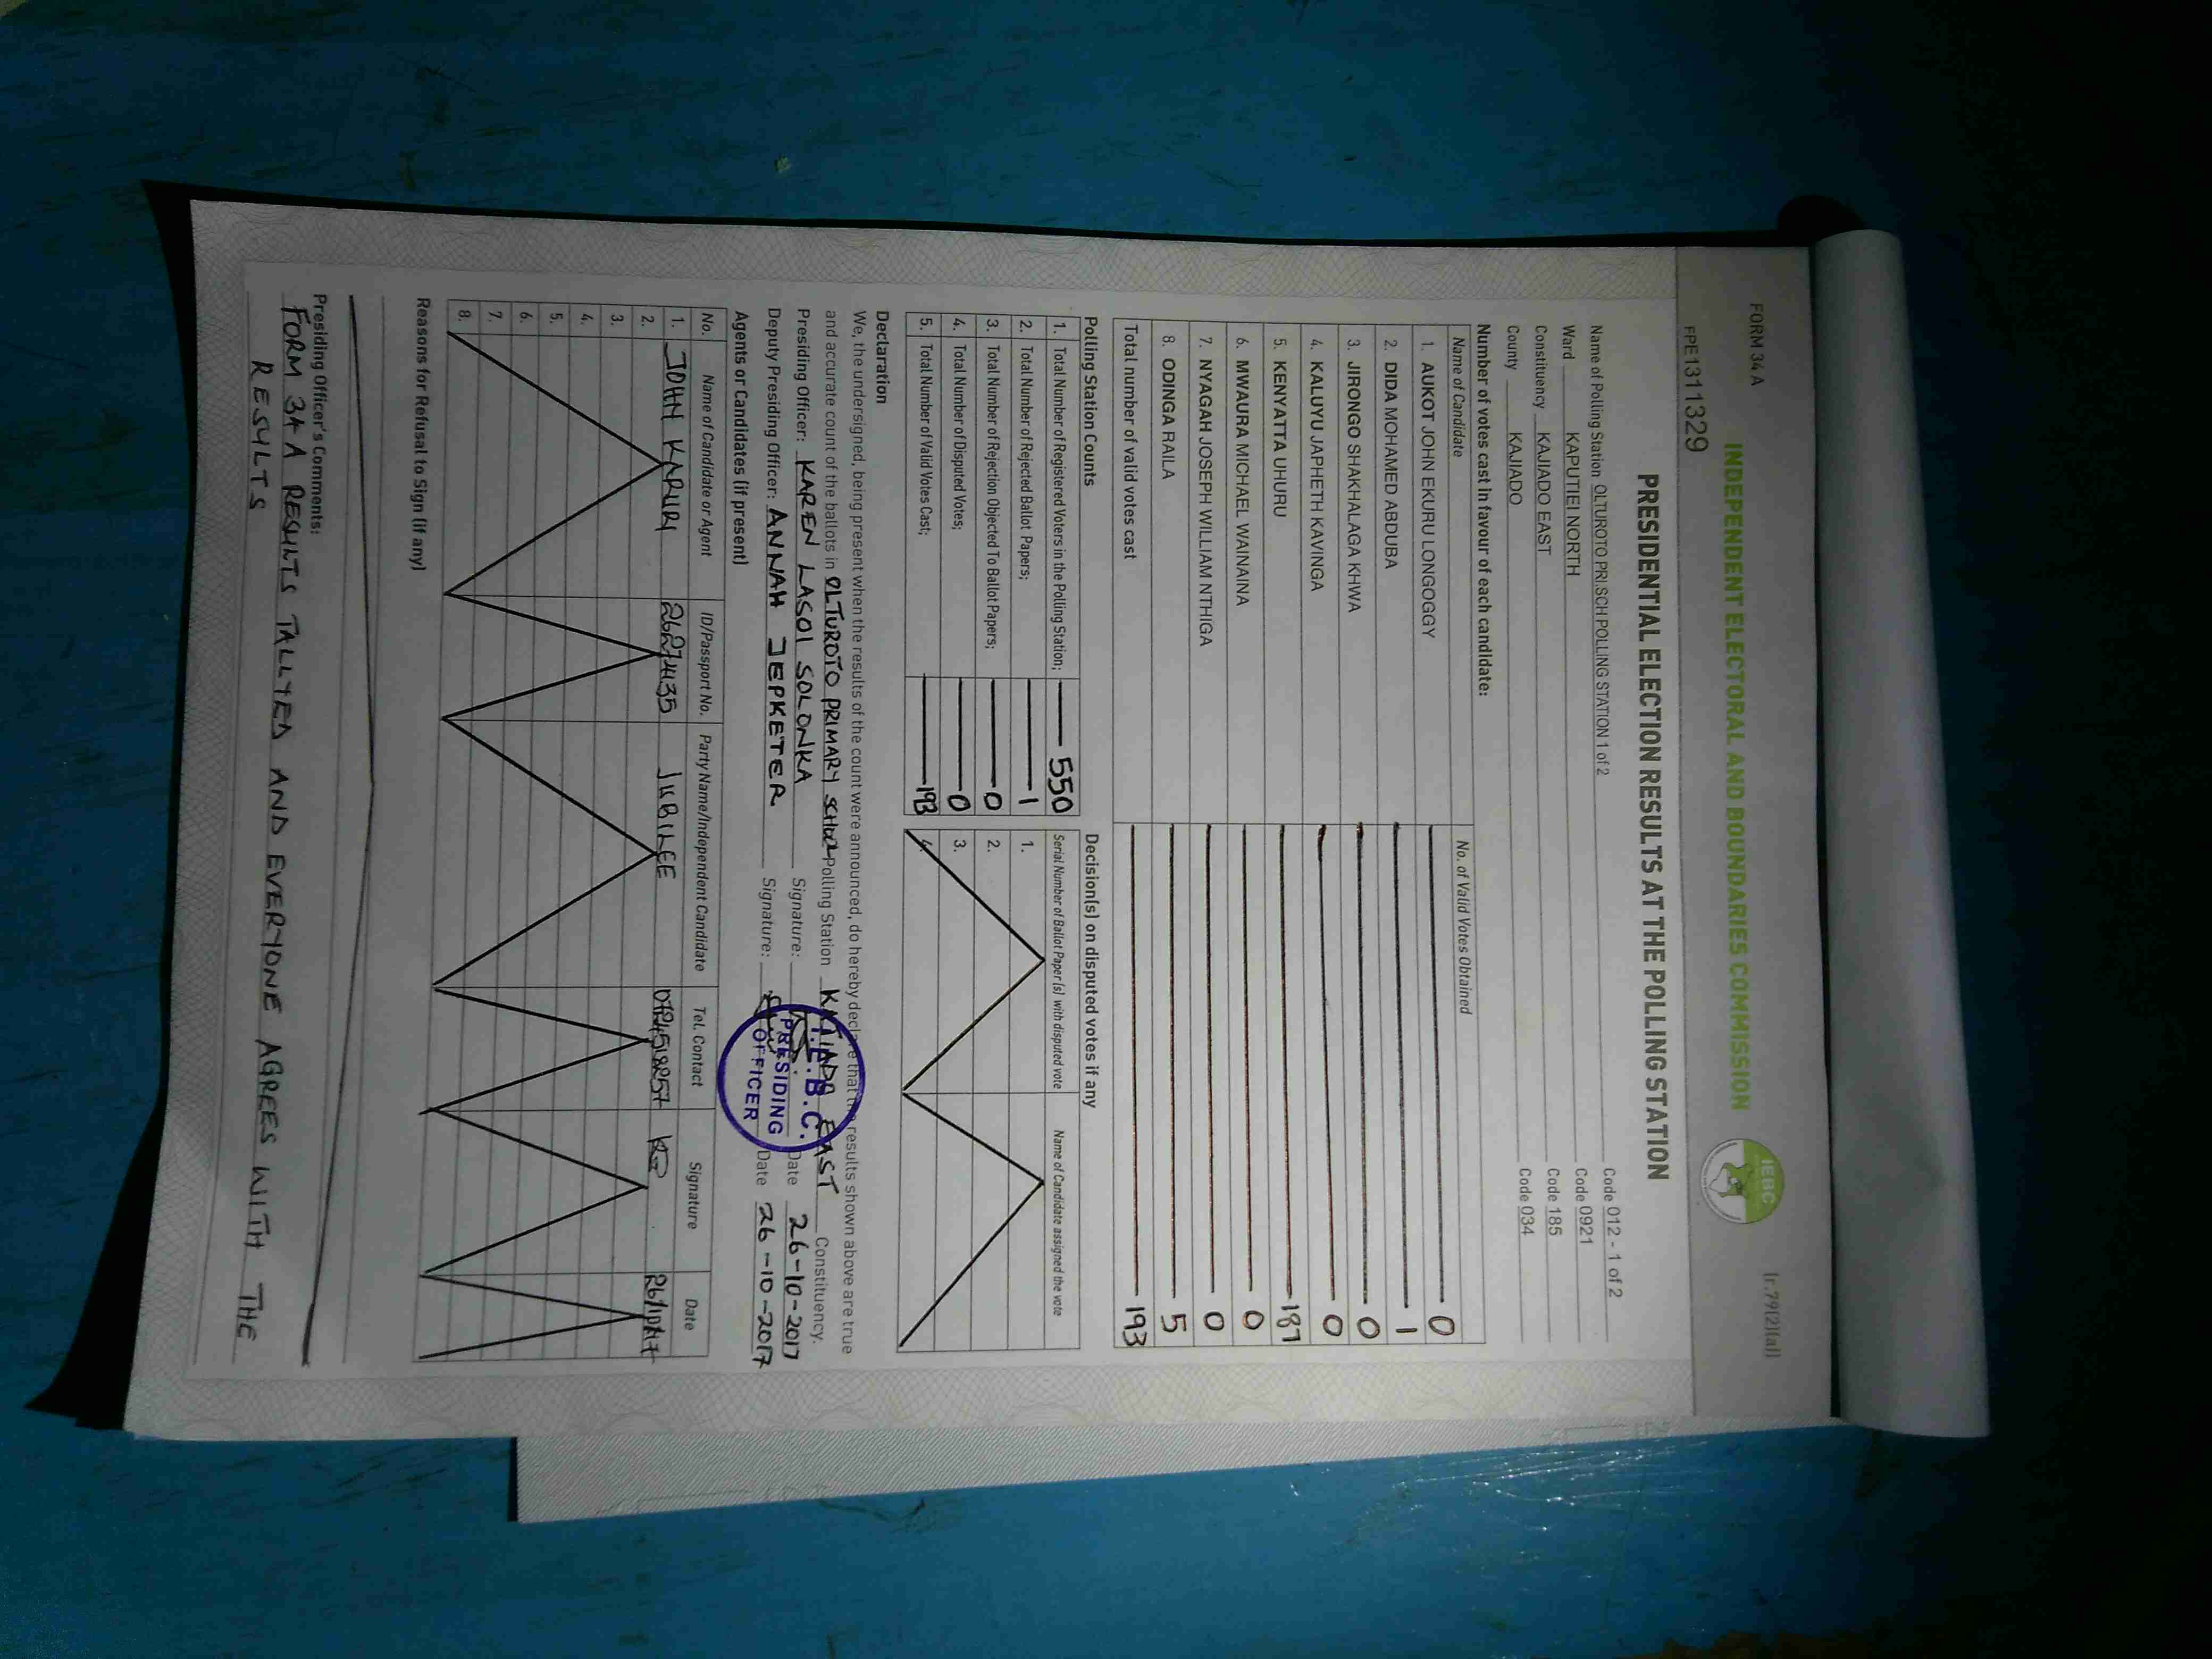 FORM 34 A
(r.79(2)(a))
INDEPENDENT ELECTORAL AND BOUNDARIES COMMISSION
IEBC
FPE1311329
PRESIDENTIAL ELECTION RESULTS AT THE POLLING STATION
Name of Polling Station OLTUROTO PRI.SCH POLLING STATION 1 of 2 Code 012 - 1 of 2
Ward KAPUTIEI NORTH Code 0921
Constituency KAJIADO EAST Code 185
County KAJIADO Code 034
Number of votes cast in favour of each candidate:
Name of Candidate No. of Valid Votes Obtained
1. AUKOT JOHN EKURU LONGOGGY 0
2. DIDA MOHAMED ABDUBA 1
3. JIRONGO SHAKHALAGA KHWA 0
4. KALUYU JAPHETH KAVINGA 0
5. KENYATTA UHURU 187
6. MWAURA MICHAEL WAINAINA 0
7. NYAGAH JOSEPH WILLIAM NTHIGA 0
8. ODINGA RAILA 5
Total number of valid votes cast 193
Polling Station Counts Decision(s) on disputed votes if any
1. Total Number of Registered Voters in the Polling Station; 550 Serial Number of Ballot Paper (s) with disputed vote Name of Candidate assigned the vote
2. Total Number of Rejected Ballot Papers; 1 1.
3. Total Number of Rejection Objected To Ballot Papers; 0 2.
4. Total Number of Disputed Votes; 0 3.
5. Total Number of Valid Votes Cast; 193 4.
Declaration
We, the undersigned, being present when the results of the count were announced, do hereby declare that the results shown above are true
and accurate count of the ballots in OLTUROTO PRIMARY SCHOOL Polling Station KAJIADO EAST Constituency.
Presiding Officer: KAREN LASOI SOLONKA Signature: Date 26-10-2017
Deputy Presiding Officer: ANNAH JEPKETER Signature: Date 26-10-2017
I.E.B.C.
PRESIDING
OFFICER
Agents or Candidates (if present)
No. Name of Candidate or Agent ID/Passport No. Party Name/Independent Candidate Tel. Contact Signature Date
1. JOHN KARURI JUBILEE
2.
3.
4.
5.
6.
7.
8.
Reasons for Refusal to Sign (if any)
Presiding Officer's Comments:
FORM 34 A RESULTS TALLYED AND EVERYONE AGREES WITH THE
RESULTS